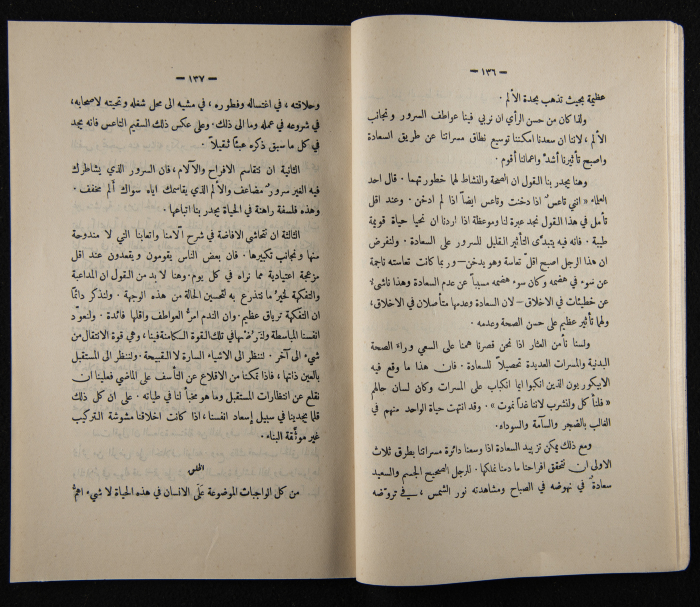 — ١٣٦ —
عظيمة بحيث تذهب بحدة الألم .
ولذا كان من حسن الرأي ان نربي فينا عواطف السرور ونجانب
الألم ، لاننا ان سعدنا امكننا توسيع نطاق مسراتنا عن طريق السعادة
واصبح تأثيرنا أشدّ واعمالنا أقوم .
وهنا يجدر بنا القول ان الصحة والنشاط لهما خطورتهما . قال احد
العلماء « انني تاعسٌ اذا دخنت وتاعس ايضاً اذا لم ادخن . وعند اقل
تأمل في هذا القول نجد عبرة لنا وموعظة اذا اردنا ان نحيا حياة قويمة
طيبة . فانه فيه يتبدّى التأثير القليل للسرور على السعادة . ولنفرض
ان هذا الرجل اصبح اقلّ تعاسة وهو يدخن – وربما كانت تعاسته ناجمة
عن سوء في هضمه وكان سوء هضمه مسبباً عن عدم السعادة وهذا ناشىء
عن خطيئات في الاخلاق – لان السعادة وعدمها متأصلان في الاخلاق،
ولهما تأثير عظيم على حسن الصحة وعدمه .
ولسنا نأمن العثار اذا نحن قصرنا همنا على السعي وراء الصحة
البدنية والمسرات العديدة تحصيلاً للسعادة . فان هذا ما وقع فيه
الابيكوريون الذين انكبوا ايما انكباب على المسرات وكان لسان حالهم
« فلنأكل ولنشرب لاننا غداً نموت » . وقد انتهت حياة الواحد منهم في
الغالب بالضجر والسآمة والسوداء .
ومع ذلك يمكن تزييد السعادة اذا وسعنا دائرة مسراتنا بطرق ثلاث
الاولى ان نتحقق افراحنا ما دمنا نملكها . فللرجل الصحيح الجسم والسعيد
سعادةٌ في نهوضه في الصباح ومشاهدته نور الشمس ، في تروّضه
— ١٣٧ —
وحلاقته ، في اغتساله وفطوره ، في مشيه الى محل شغله وتحيته لاصحابه،
في شروعه في عمله وما الى ذلك . وعلى عكس ذلك السقيم التاعس فانه يجد
في كل ما سبق ذكره عبثاً ثقيلاً .
الثانية ان نتقاسم الافراح والآلام ، فان السرور الذي يشاطرك
فيه الغير سرورٌ مضاعف والألم الذي يقاسمك اياه سواك ألم مخفف .
وهذه فلسفة راهنة في الحياة يجدر بنا اتباعها .
الثالثة ان نتحاشى الافاضة في شرح آلامنا واتعابنا التي لا مندوحة
منها ونجانب تكبيرها . فان بعض الناس يقومون ويقعدون عند اقل
مزعجة اعتيادية مما نراه في كل يوم . وهنا لا بد من القول ان المداعبة
والتفكهة لخيرُ ما نتذرع به لتحسين الحالة من هذه الوجهة . ولنذكر دائماً
ان التفكهة ترياق عظيم . وان الندم امرّ العواطف واقلها فائدة . ولنعوّد
انفسنا المباسطة ولنرُضها في تلك القوة الكامنة فينا ، وهي قوة الانتقال من
شيء الى آخر . لننظر الى الاشياء السارة لا القبيحة . ولننظر الى المستقبل
بالعين ذاتها ، فاذا تمكنا من الاقلاع عن التأسف على الماضي فعلينا ان
نقلع عن انتظارات المستقبل وما هو مخبأ لنا في طياته . على ان كل ذلك
قلما يجدينا في سبيل إسعاد انفسنا ، اذا كانت اخلاقنا مشوشة التركيب
غير موثّقة البناء .
من كل الواجبات الموضوعة عَلَى الانسان في هذه الحياة لا شيء اهمُّ